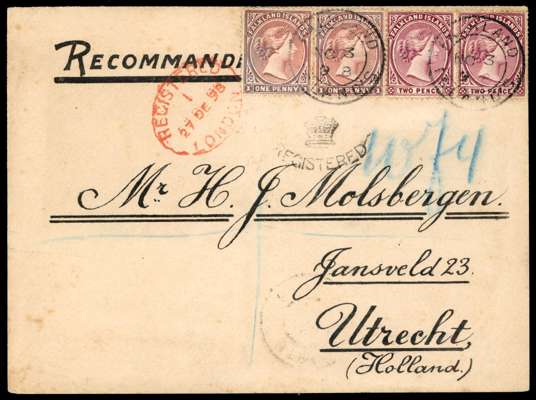 FALKLAND ISLANDS FALKLAND ISLANDS FALKLAND ISLANDS FALKLAND ISLANDS
1 ONE PENNY 1 ONE PENNY TWO PENCE TWO PENCE
RECOMMANDÉ
REGISTERED
1
27 DE 98
LONDON
REGISTERED
Mr. H. J. Molsbergen.
Jansveld 23.
Utrecht,
(Holland.)